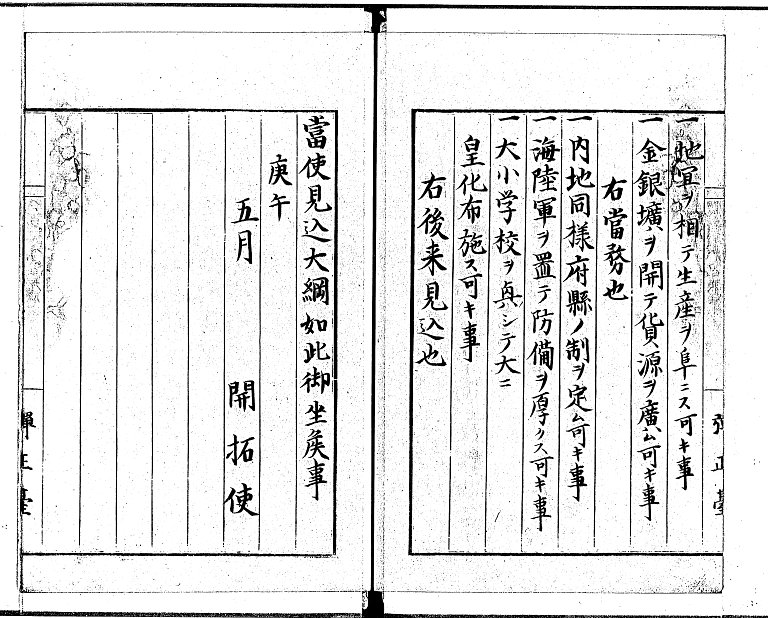 一地宜ヲ相テ生産ヲ阜ニス可キ事
一金銀壙ヲ開テ貨源ヲ廣ム可キ事
右當務也
一内地同様府縣ノ制ヲ定ム可キ事
一海陸軍ヲ置テ防備ヲ厚クス可キ事
一大小学校ヲ興シテ大ニ
皇化布施ス可キ事
右後来見込也
彈正臺
當使見込大綱如此御坐矦事
庚午
五月
開拓使
彈正臺